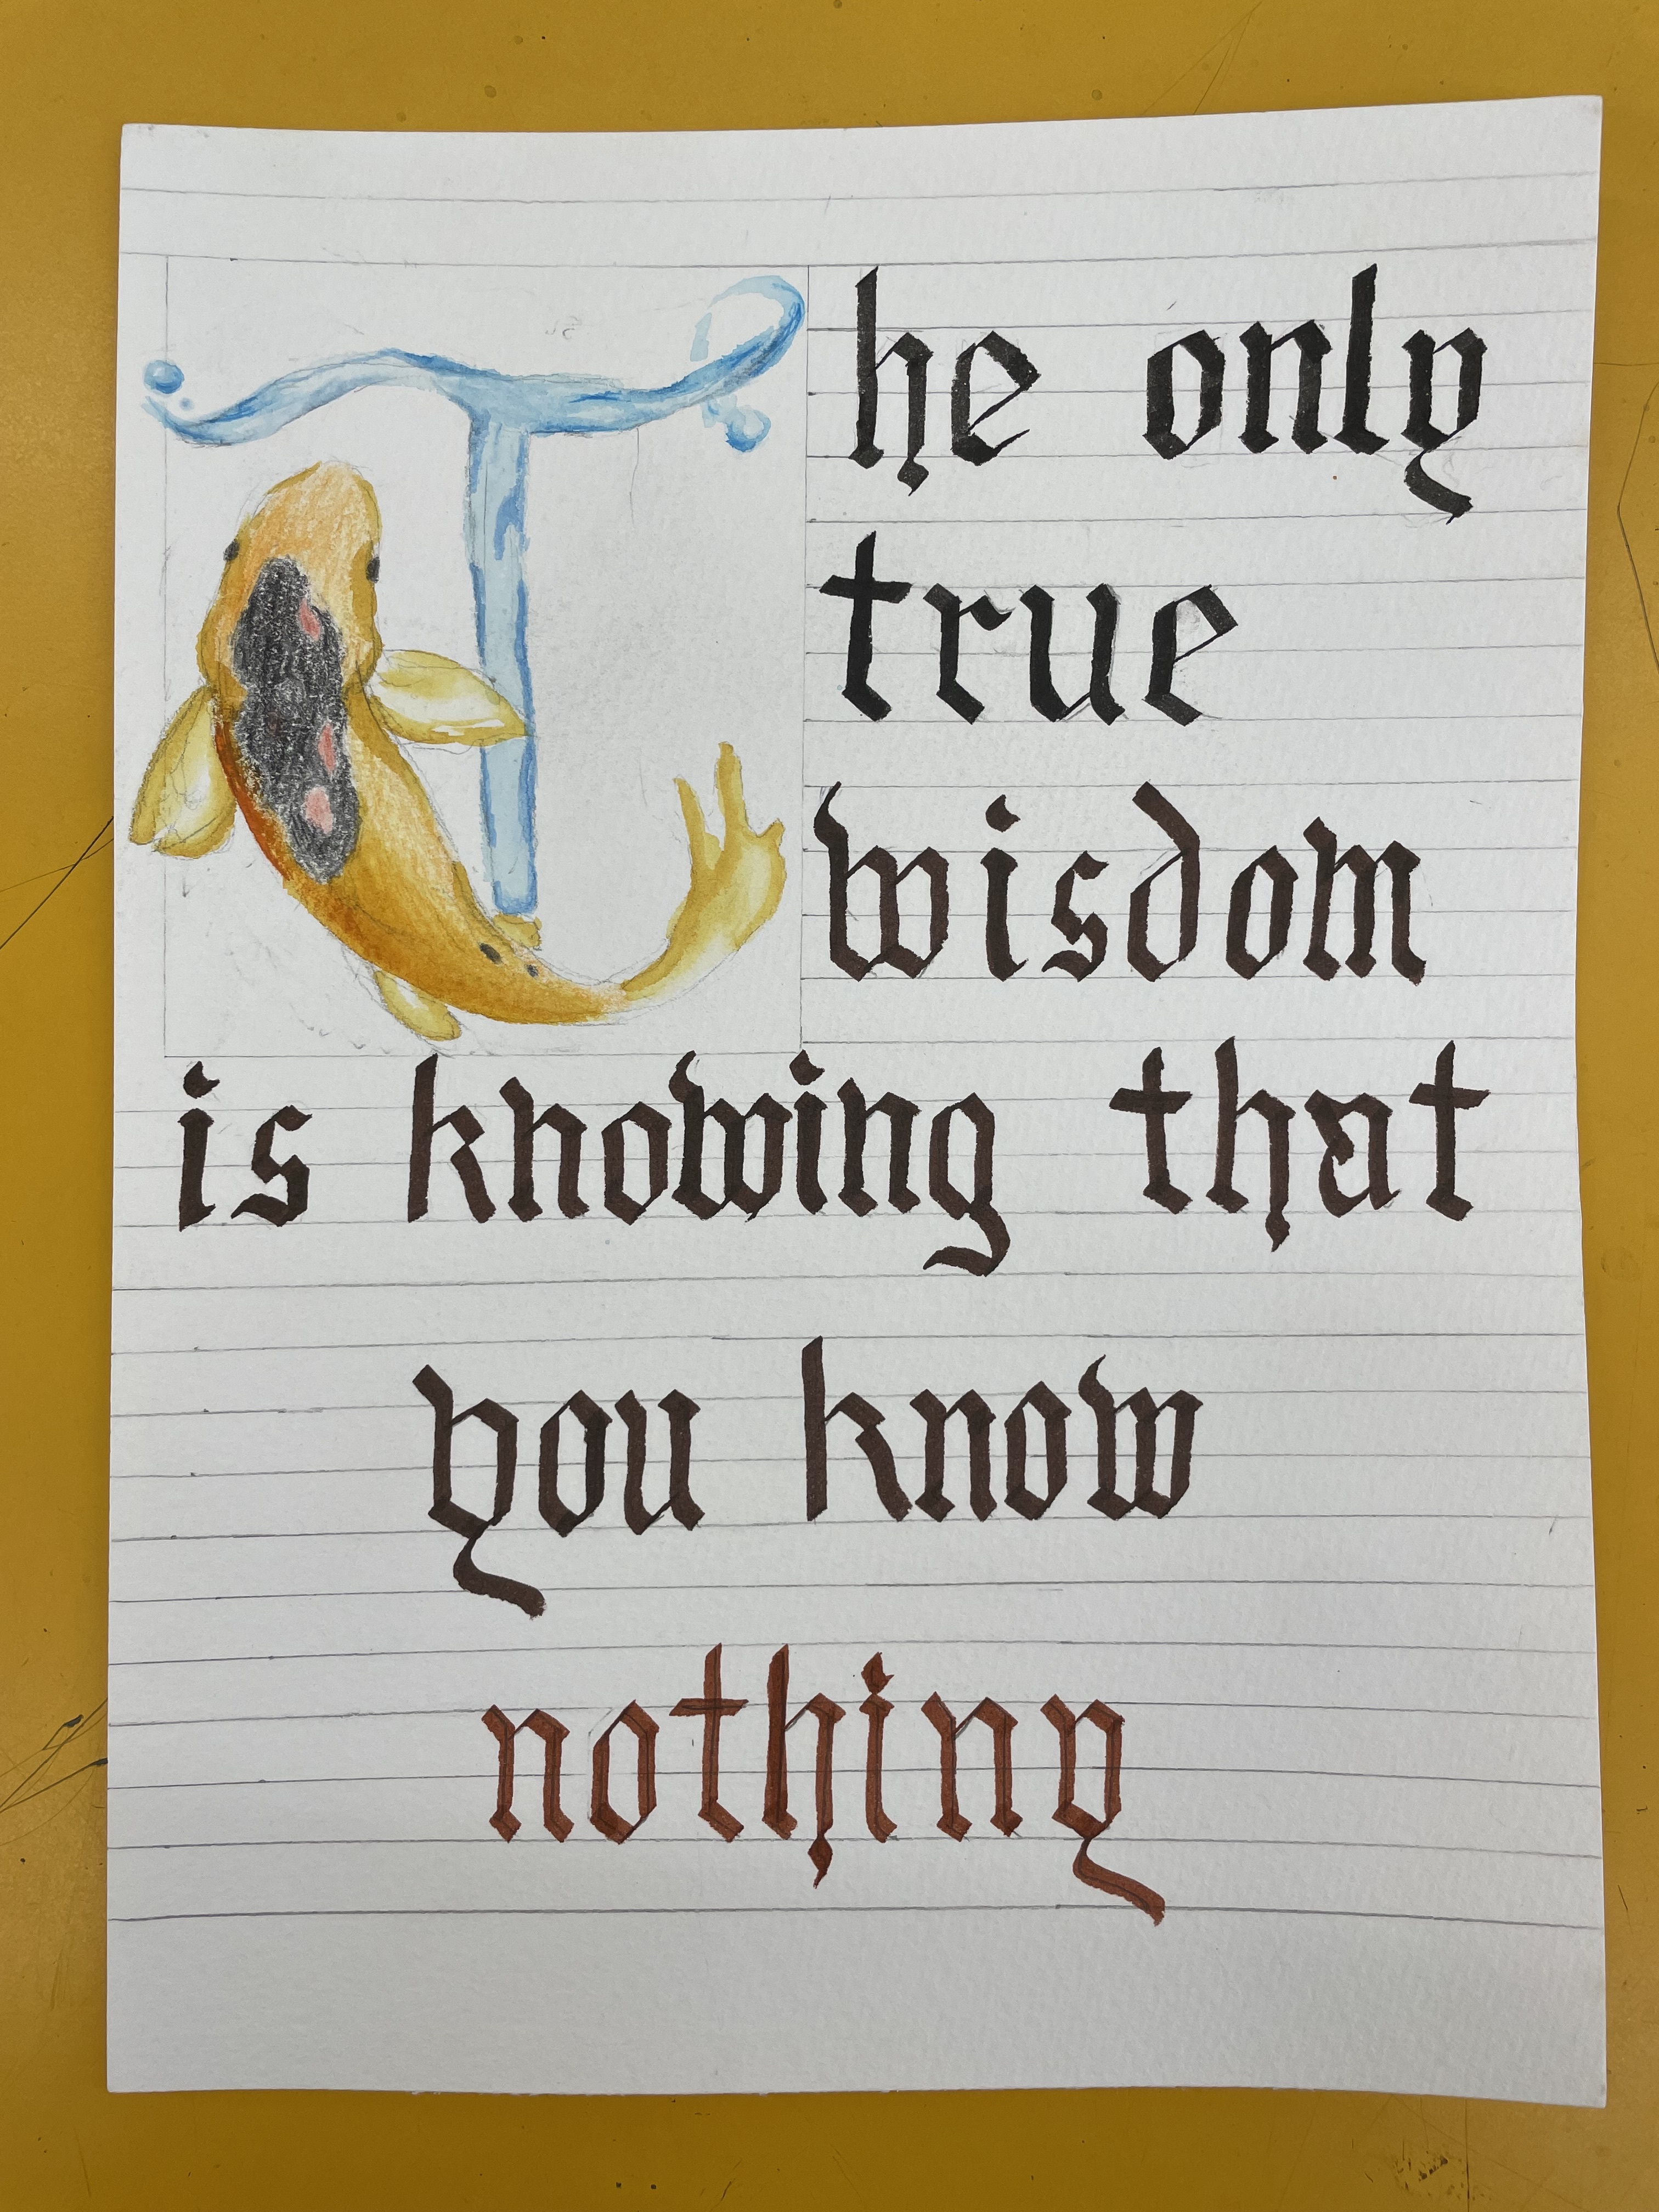 The only
true
wisdom
is knowing that
you know
nothing